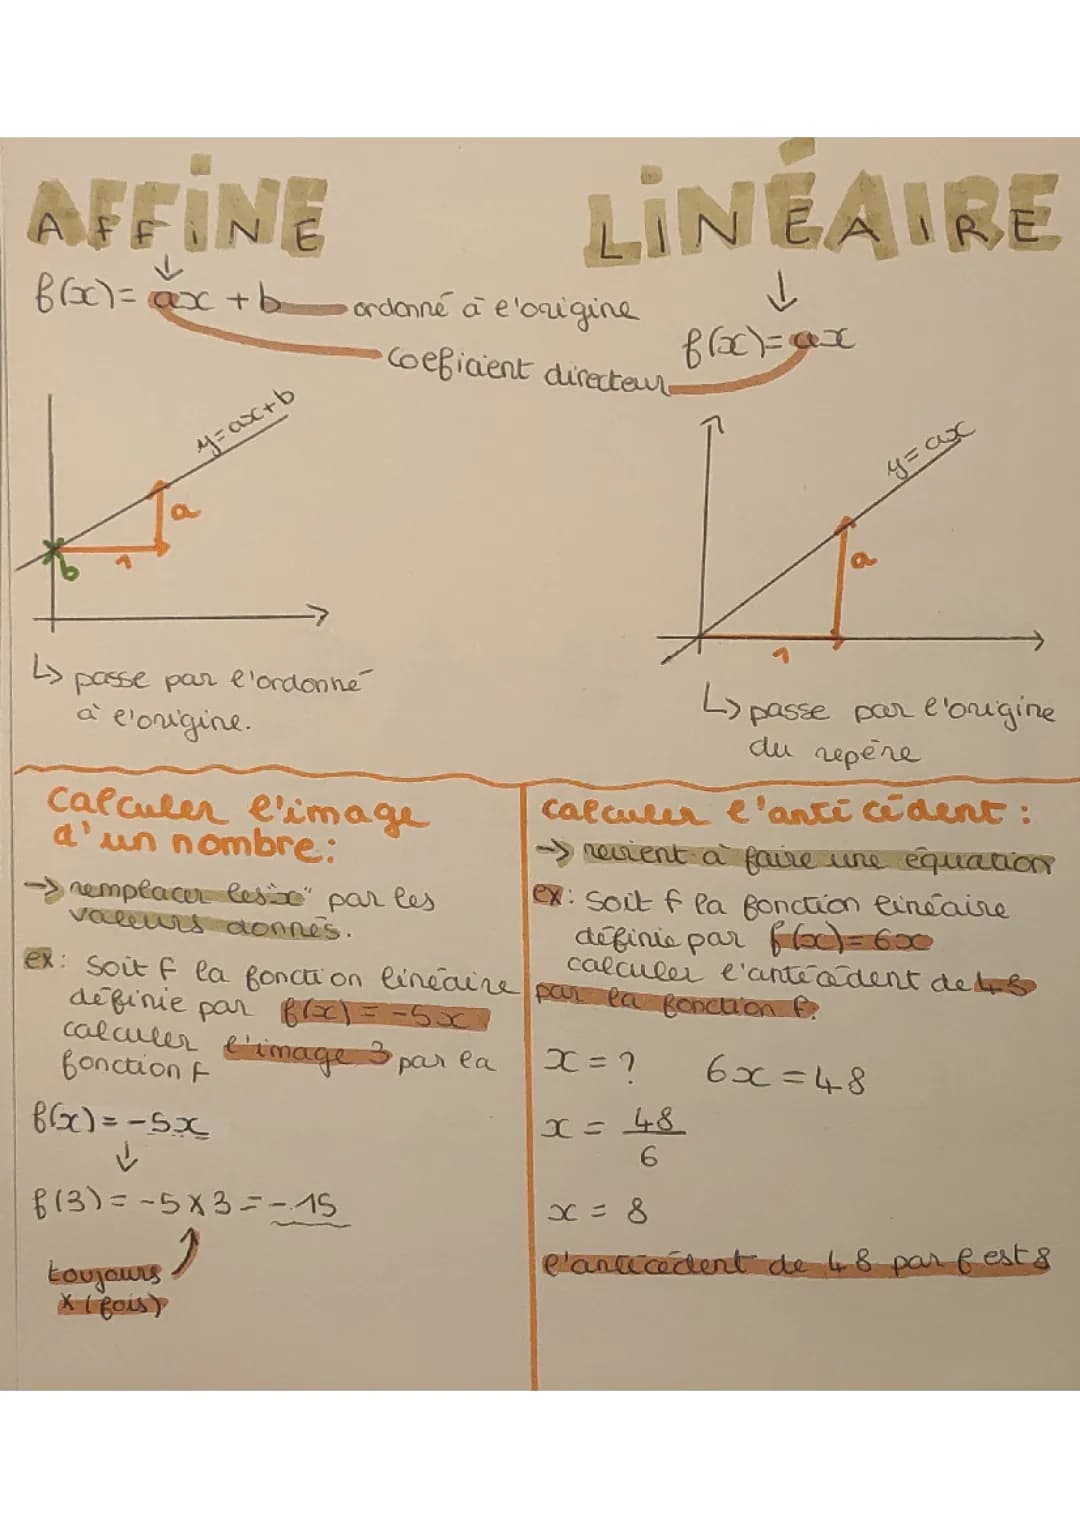 AFFINE
f(x)= ax + b ordonné à l'origine
coeficient directeur
y=ax+b
a
1
b
↳ passe par l'ordonné
à l'origine.
LINÉAIRE
f(x)=ax
y=ax
a
1
↳ passe par l'origine
du repère
calculer l'image
d'un nombre:
→ remplacer les "x" par les
valeurs donnés.
ex: Soit f la fonction linéaire
définie par f(x)=-5x
calculer l'image 3 par la
fonction f
f(x)=-5x
↓
f(3)=-5x3=-15
toujours
x (fois)
calculer l'antécédent :
→ revient à faire une équation
ex: Soit f la fonction linéaire
définie par f(x)=6x
calculer l'antécédent de 48
par la fonction f.
x=? 6x=48
x = 48
6
x = 8
l'antécédent de 48 par f est 8